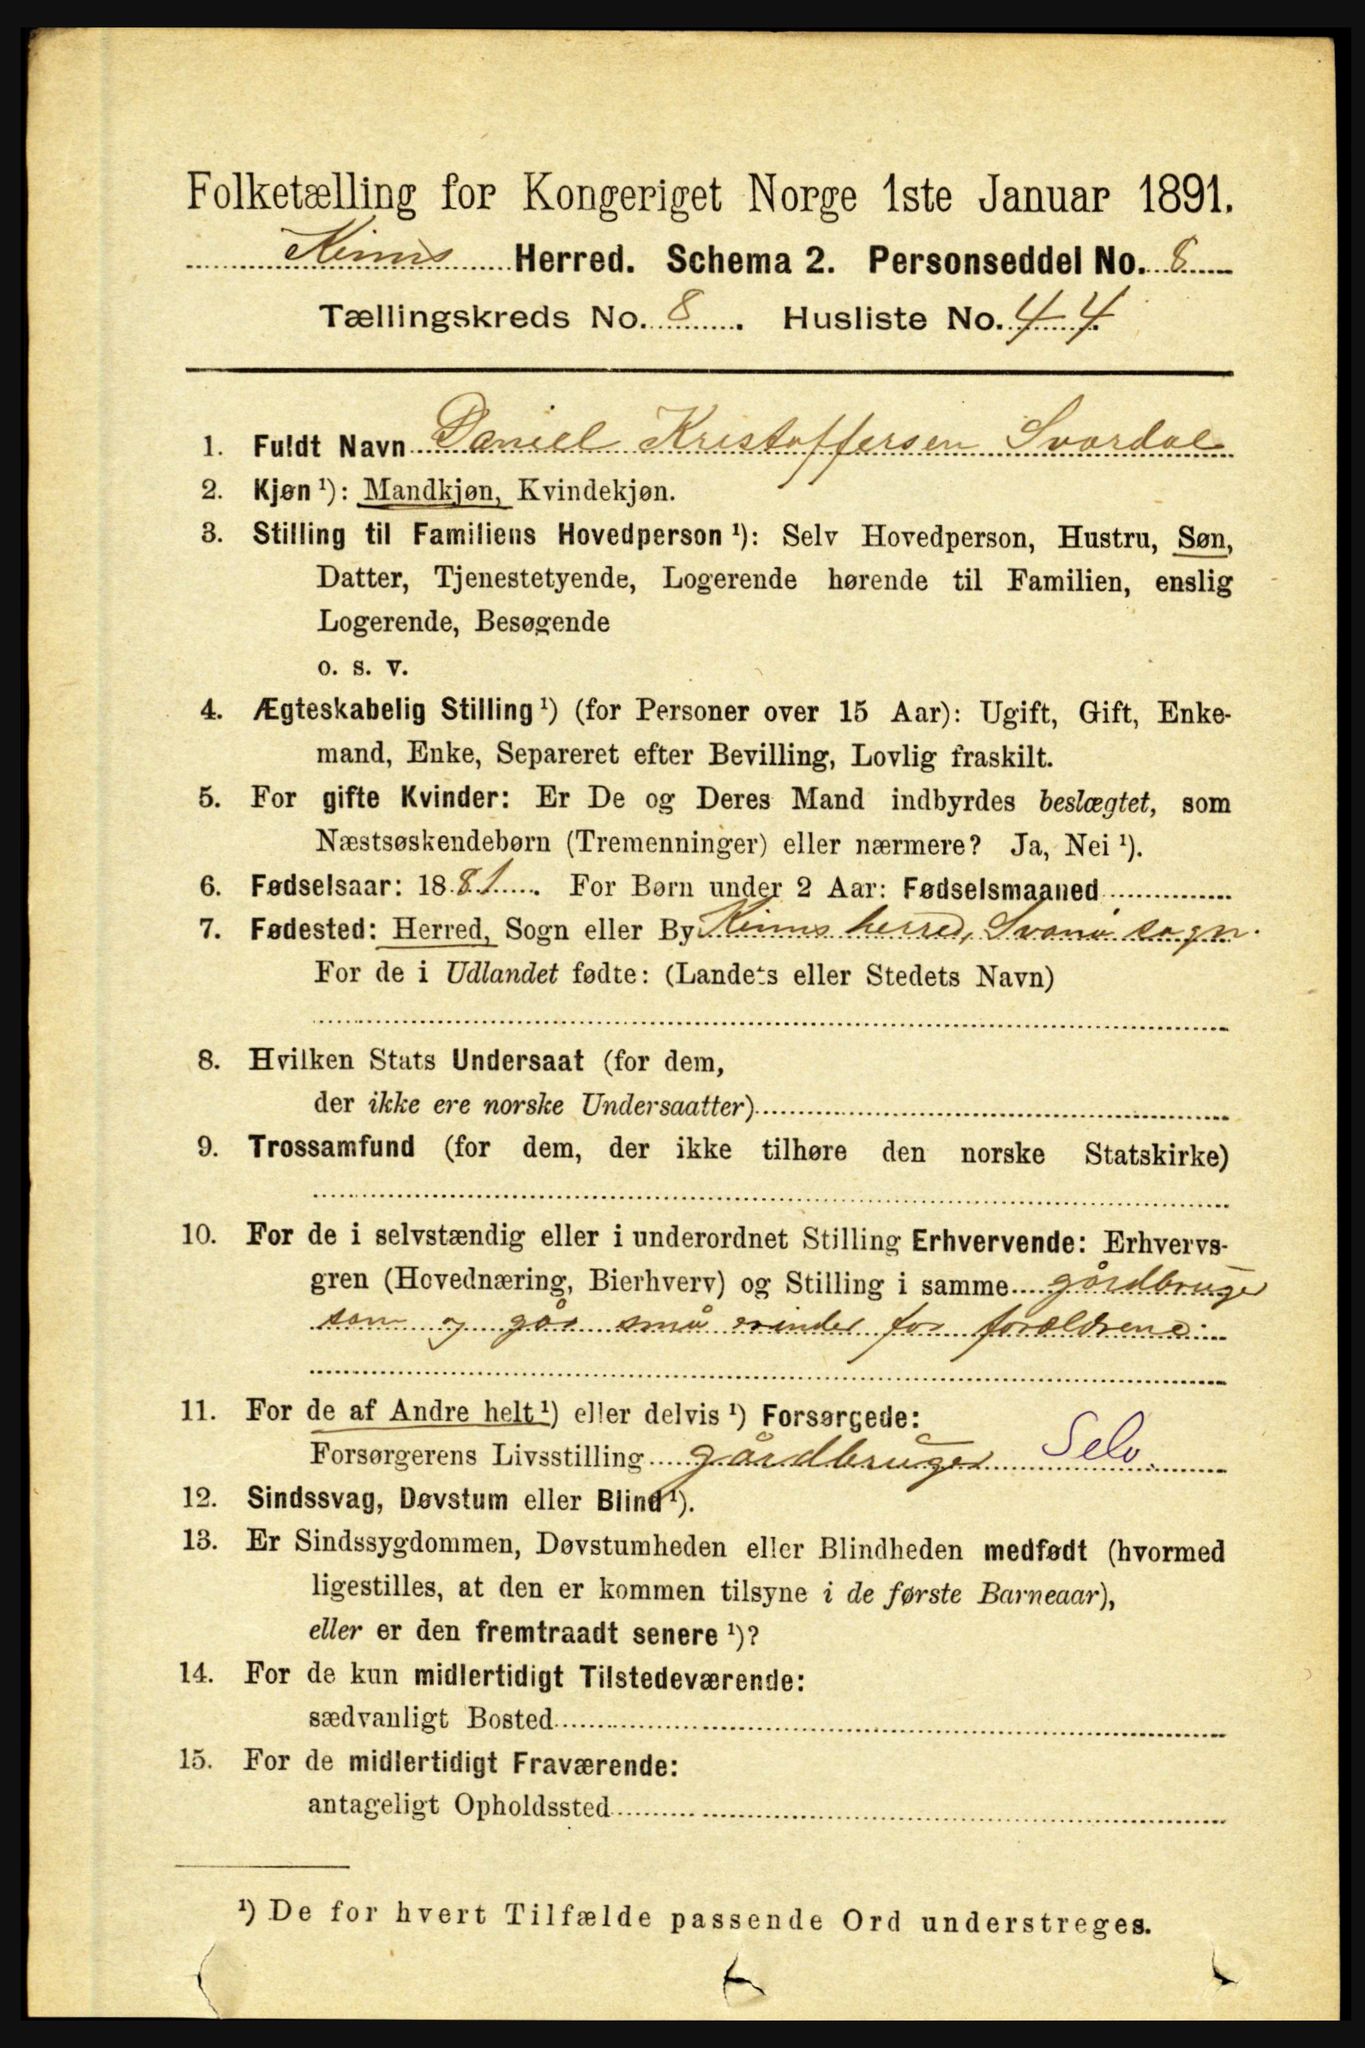 Folketælling for Kongeriget Norge 1ste Januar 1891.
Kinns Herred. Schema 2. Personseddel No. 8
Tællingskreds No. 8. Husliste No. 44.
1. Fuldt Navn Daniel Kristoffersen Svardal
2. Kjøn ¹): Mandkjøn, Kvindekjøn.
3. Stilling til Familiens Hovedperson ¹): Selv Hovedperson, Hustru, Søn,
Datter, Tjenestetyende, Logerende hørende til Familien, enslig
Logerende, Besøgende
o. s. v.
4. Ægteskabelig Stilling ¹) (for Personer over 15 Aar): Ugift, Gift, Enke-
mand, Enke, Separeret efter Bevilling, Lovlig fraskilt.
5. For gifte Kvinder: Er De og Deres Mand indbyrdes beslægtet, som
Næstsøskendebørn (Tremenninger) eller nærmere? Ja, Nei ¹).
6. Fødselsaar: 1881. For Børn under 2 Aar: Fødselsmaaned
7. Fødested: Herred, Sogn eller By Kinns herred, Svanø sogn.
For de i Udlandet fødte: (Landets eller Stedets Navn)
8. Hvilken Stats Undersaat (for dem,
der ikke ere norske Undersaatter)
9. Trossamfund (for dem, der ikke tilhøre den norske Statskirke)
10. For de i selvstændig eller i underordnet Stilling Erhvervende: Erhvervs-
gren (Hovednæring, Bierhverv) og Stilling i samme gårdbruger
søn og går små erinder for forældrene.
11. For de af Andre helt ¹) eller delvis ¹) Forsørgede:
Forsørgerens Livsstilling gårdbruger Selv.
12. Sindssvag, Døvstum eller Blind ¹).
13. Er Sindssygdommen, Døvstumheden eller Blindheden medfødt (hvormed
ligestilles, at den er kommen tilsyne i de første Barneaar),
eller er den fremtraadt senere ¹)?
14. For de kun midlertidigt Tilstedeværende:
sædvanligt Bosted
15. For de midlertidigt Fraværende:
antageligt Opholdssted
¹) De for hvert Tilfælde passende Ord understreges.